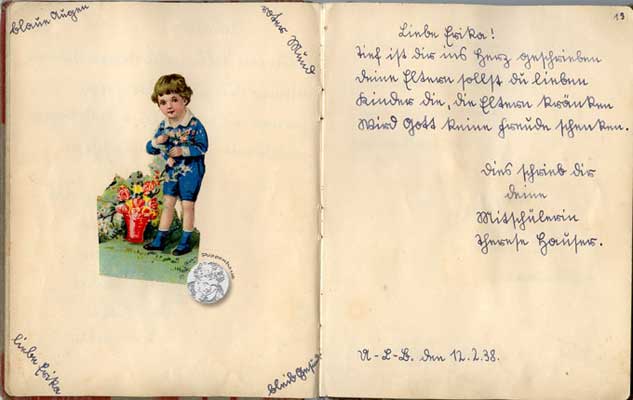 blaue Augen
roter Mund
liebe Erika
bleib gesund
13
Liebe Erika!
Tief ist dir ins Herz geschrieben
deine Eltern sollst du lieben
Kinder die, die Eltern kränken
Wird Gott keine Freude schenken.
Dies schrieb dir
deine
Mitschülerin
Therese Hauser.
A-L-B. den 12.2.38.